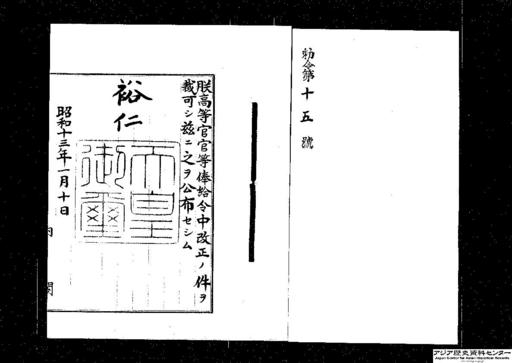 勅令第十五號
朕高等官官等俸給令中改正ノ件ヲ
裁可シ茲ニ之ヲ公布セシム
裕仁
天皇御璽
昭和十三年一月十日
内閣
アジア歴史資料センター
Japan Center for Asian Historical Records